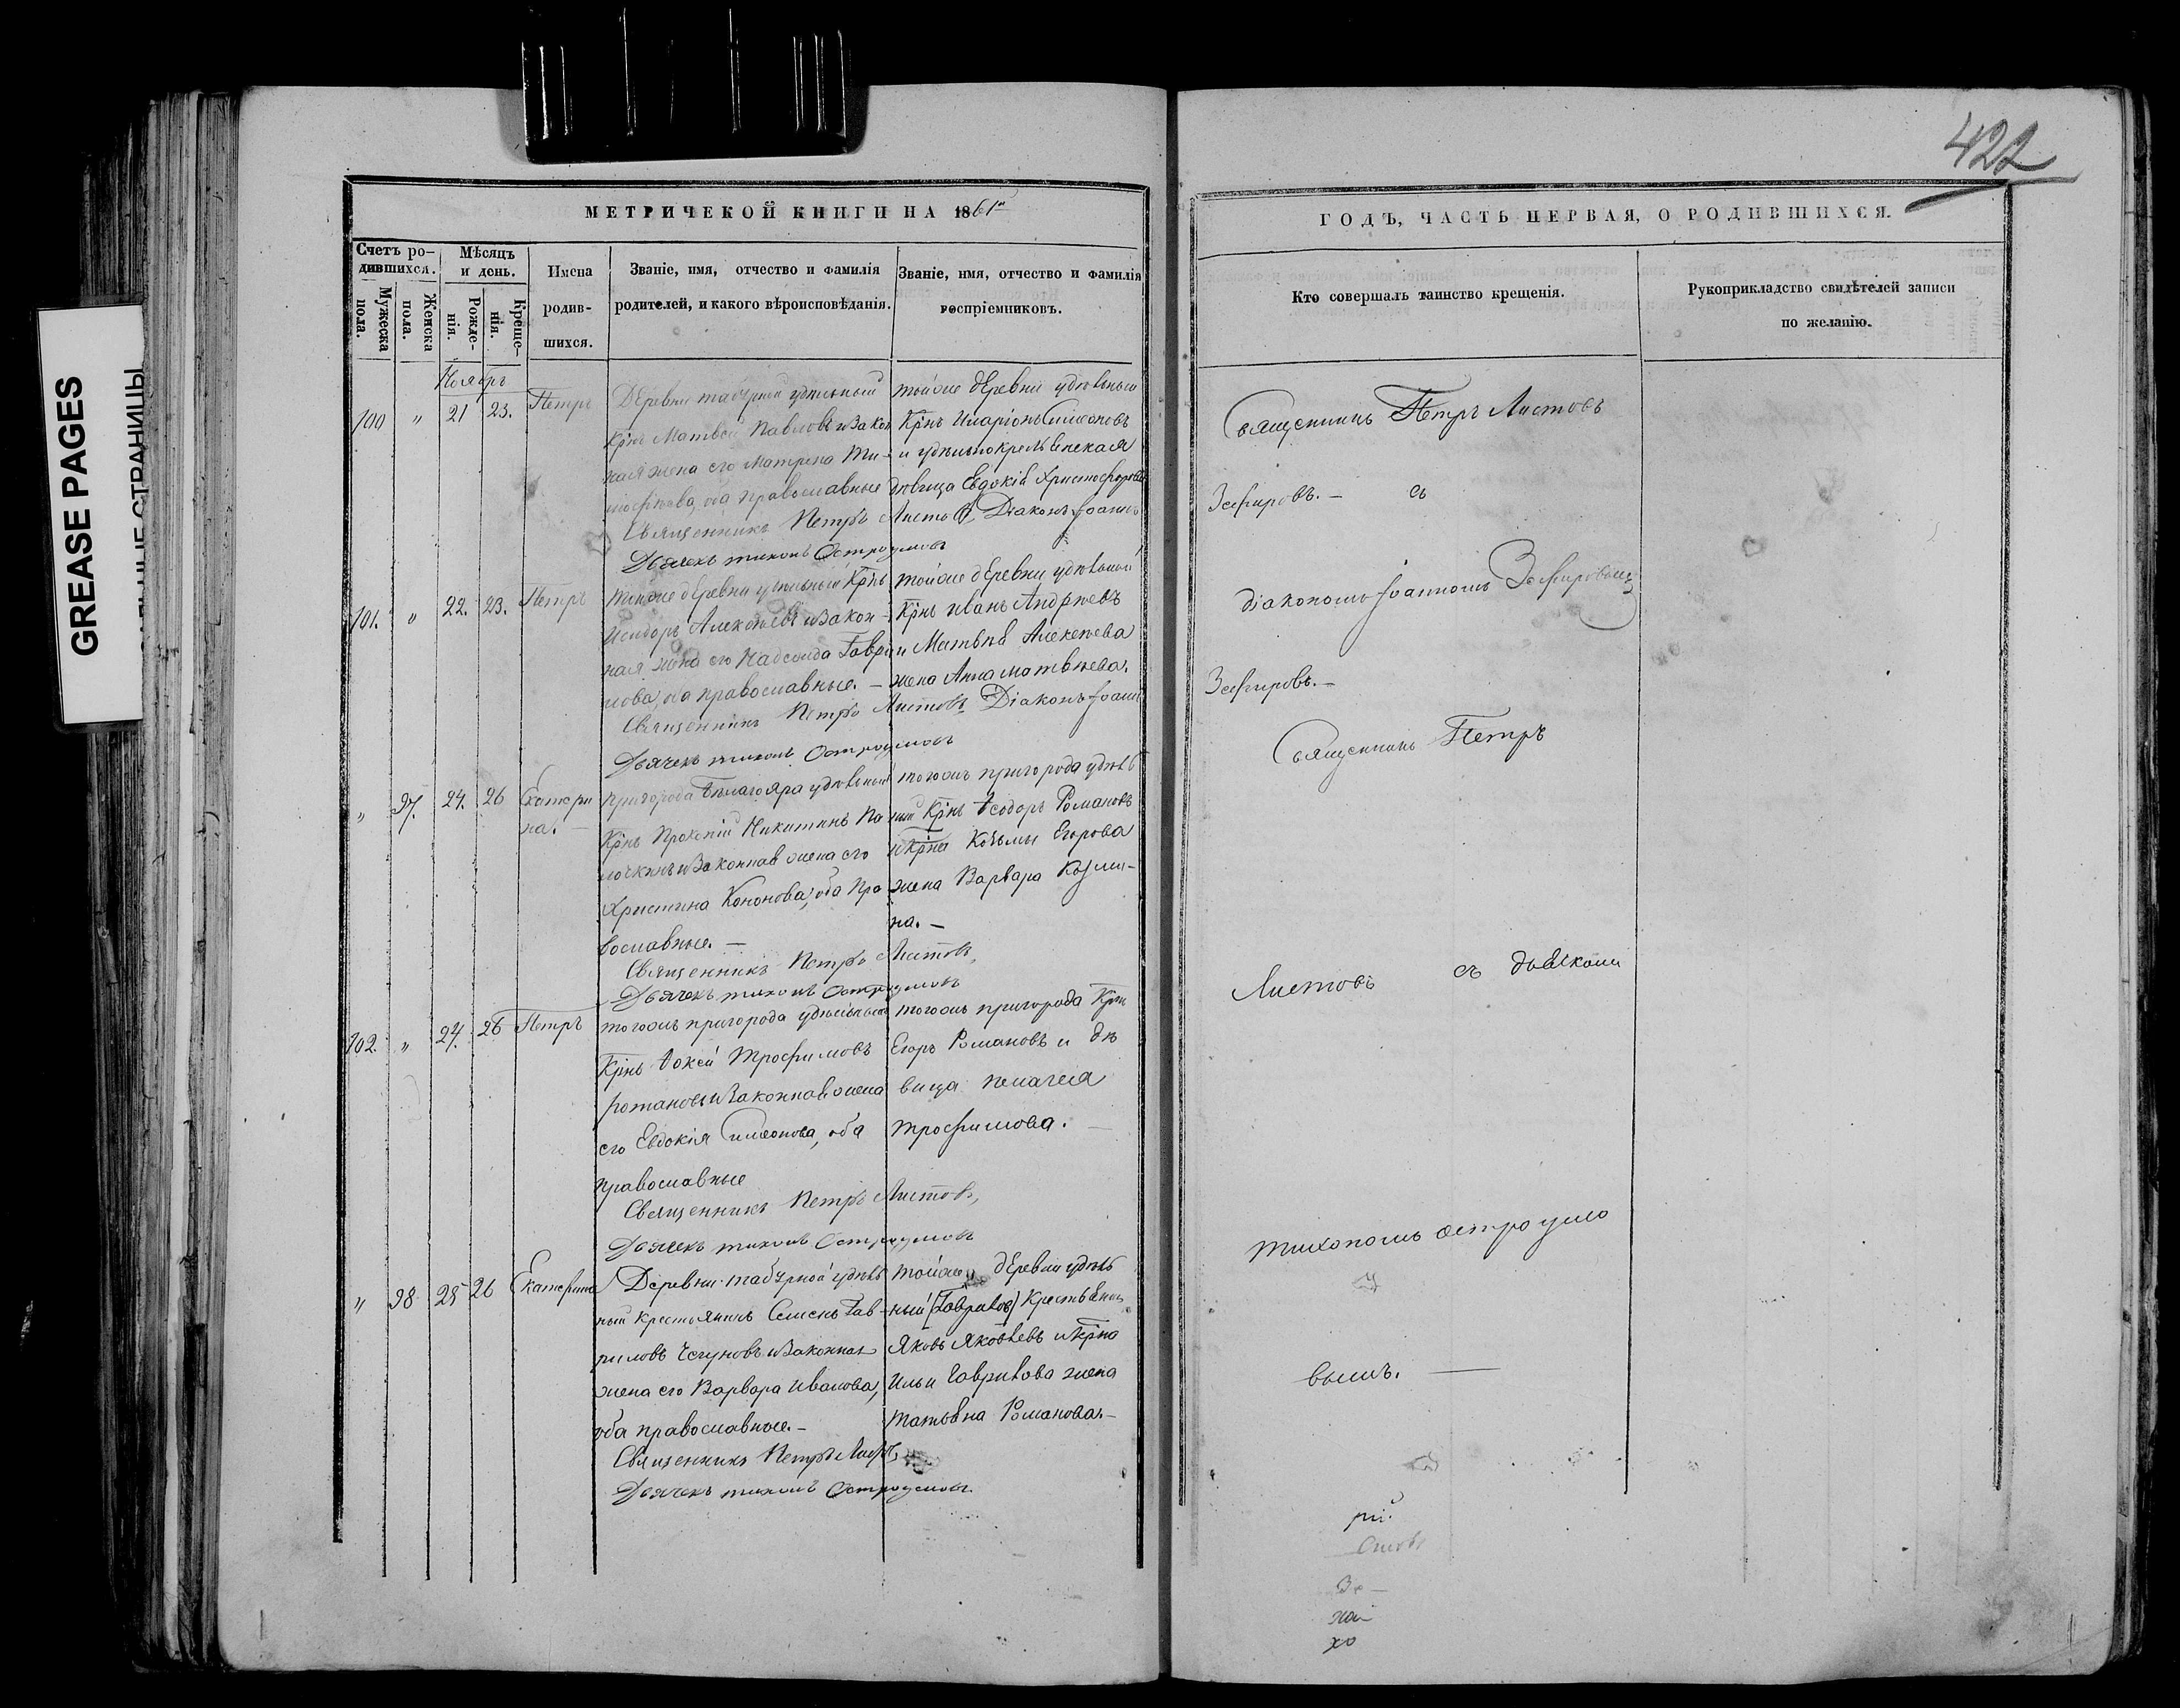 GREASE PAGES
СТРАНИЦЫ
422
МЕТРИЧЕКОЙ КНИГИ НА 1861й
ГОДЪ, ЧАСТЬ ПЕРВАЯ, О РОДИВШИХСЯ.
Счетъ ро-
дившихся.
Мужеска
пола.
Женска
пола.
Мѣсяцъ
и день.
Рожде-
нія.
Креще-
нія.
Имена
родив-
шихся.
Званіе, имя, отчество и фамилія
родителей, и какого вѣроисповѣданія.
Званіе, имя, отчество и фамилія
воспріемниковъ.
Кто совершалъ таинство крещенія.
Рукоприкладство свидѣтелей записи
по желанію.
Ноябрь
100 " 21 23. Петръ
Деревни табурной удѣльный
Крнъ Матвей Павловъ и закон
ная жена его Матрена Ти-
мофѣева, оба православные
тойже деревни удѣльный
Крнъ Иларіонъ Симеоновъ
и удѣльнокрестьянская
дѣвица Евдокія Христофорова
Священникъ Петръ Листовъ, Діаконъ Іоаннъ
Дьячекъ тихонъ Остроумовъ
101. " 22. 23. Петръ
тойже деревни удѣльный Крнъ
Исидоръ Алексѣевъ и закон-
ная жена его Надежда Гаври
лова, оба православные. –
тойже деревни удѣльный
Крнъ иванъ Андрѣевъ
и Матвѣя Алексѣева
жена Анна матвѣева.
Священникъ Петръ Листовъ Діаконъ Іоаннъ
Дьячекъ тихонъ Остроумовъ
" 97. 24. 26 Екатери
на. –
пригорода Бѣлаго яра удѣльный
Крнъ Прокопій Никитинъ По
лочкинъ и законная жена его
Христина Кононова, оба пра
вославные. –
тогожъ пригорода удѣль
ный Крнъ Ѳеодоръ Романовъ
и Крна Козьмы Егорова
жена Варвара Козми-
на. –
Священникъ Петръ Листовъ,
Дьячекъ тихонъ Остроумовъ
102. " 24. 26 Петръ
тогожъ пригорода удѣльный
Крнъ Ѳокей трофимовъ
романовъ и законная жена
его Евдокія Симеонова, оба
православные
тогожъ пригорода Крнъ
Егоръ Романовъ и дѣ
вица пелагея
трофимова. –
Священникъ Петръ Листовъ,
Дьячекъ тихонъ Остроумовъ
" 98 25 26 Екатерина
Деревни табурной удѣль
ный крестьянинъ Семенъ Гав-
риловъ Чегуновъ и законная
жена его Варвара Иванова,
оба православные. –
тойже деревни удѣль
ный (Гавриловъ) Крестьянинъ
Яковъ Яковлевъ и крна
Ильи Гаврилова жена
татьяна Романова. –
Священникъ Петръ Листъ,
Дьячекъ тихонъ Остроумовъ.
Священникъ Петръ Листовъ
Зефировъ. – съ
діакономъ Іоанномъ Зефировымъ
Зефировъ. –
Священникъ Петръ
Листовъ съ дьячкомъ
тихономъ остроумо
вымъ. –